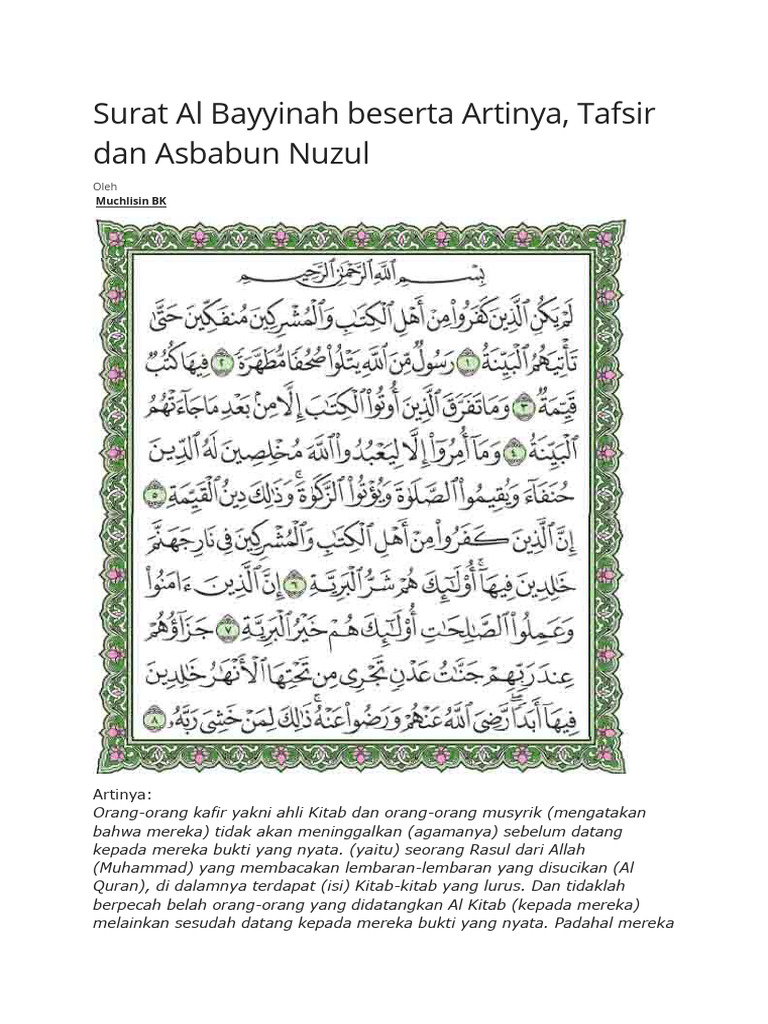 Surat Al Bayyinah beserta Artinya, Tafsir
dan Asbabun Nuzul
Oleh
Muchlisin BK
بِسْمِ ٱللَّهِ ٱلرَّحْمَٰنِ ٱلرَّحِيمِ
لَمْ يَكُنِ ٱلَّذِينَ كَفَرُوا۟ مِنْ أَهْلِ ٱلْكِتَٰبِ وَٱلْمُشْرِكِينَ مُنفَكِّينَ حَتَّىٰ
تَأْتِيَهُمُ ٱلْبَيِّنَةُ ١ رَسُولٌ مِّنَ ٱللَّهِ يَتْلُوا۟ صُحُفًا مُّطَهَّرَةً ٢ فِيهَا كُتُبٌ
قَيِّمَةٌ ٣ وَمَا تَفَرَّقَ ٱلَّذِينَ أُوتُوا۟ ٱلْكِتَٰبَ إِلَّا مِنۢ بَعْدِ مَا جَآءَتْهُمُ
ٱلْبَيِّنَةُ ٤ وَمَآ أُمِرُوٓا۟ إِلَّا لِيَعْبُدُوا۟ ٱللَّهَ مُخْلِصِينَ لَهُ ٱلدِّينَ
حُنَفَآءَ وَيُقِيمُوا۟ ٱلصَّلَوٰةَ وَيُؤْتُوا۟ ٱلزَّكَوٰةَ ۚ وَذَٰلِكَ دِينُ ٱلْقَيِّمَةِ ٥
إِنَّ ٱلَّذِينَ كَفَرُوا۟ مِنْ أَهْلِ ٱلْكِتَٰبِ وَٱلْمُشْرِكِينَ فِى نَارِ جَهَنَّمَ
خَٰلِدِينَ فِيهَآ ۚ أُو۟لَٰٓئِكَ هُمْ شَرُّ ٱلْبَرِيَّةِ ٦ إِنَّ ٱلَّذِينَ ءَامَنُوا۟
وَعَمِلُوا۟ ٱلصَّٰلِحَٰتِ أُو۟لَٰٓئِكَ هُمْ خَيْرُ ٱلْبَرِيَّةِ ٧ جَزَآؤُهُمْ
عِندَ رَبِّهِمْ جَنَّٰتُ عَدْنٍ تَجْرِى مِن تَحْتِهَا ٱلْأَنْهَٰرُ خَٰلِدِينَ
فِيهَآ أَبَدًا ۖ رَّضِىَ ٱللَّهُ عَنْهُمْ وَرَضُوا۟ عَنْهُ ۚ ذَٰلِكَ لِمَنْ خَشِىَ رَبَّهُۥ ٨
Artinya:
Orang-orang kafir yakni ahli Kitab dan orang-orang musyrik (mengatakan
bahwa mereka) tidak akan meninggalkan (agamanya) sebelum datang
kepada mereka bukti yang nyata. (yaitu) seorang Rasul dari Allah
(Muhammad) yang membacakan lembaran-lembaran yang disucikan (Al
Quran), di dalamnya terdapat (isi) Kitab-kitab yang lurus. Dan tidaklah
berpecah belah orang-orang yang didatangkan Al Kitab (kepada mereka)
melainkan sesudah datang kepada mereka bukti yang nyata. Padahal mereka